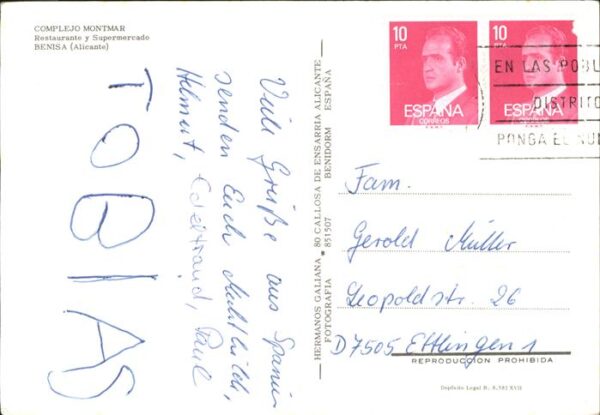 COMPLEJO MONTMAR
Restaurante y Supermercado
BENISA (Alicante)
Viele Grüße aus Spanien
senden Euch
Helmut, Edeltraud, Paul
TOBIAS
HERMANOS GALIANA * 80 CALLOSA DE ENSARRIA ALICANTE
FOTOGRAFIA 851507 BENIDORM ESPAÑA
10
PTA
ESPAÑA
CORREOS
10
PTA
ESPAÑA
EN LAS POBL
DISTRITO
PONGA EL NUM
Fam.
Gerold Müller
Leopoldstr. 26
D7505 Ettlingen 1
REPRODUCCION PROHIBIDA
Depósito Legal B. A.583 XVII